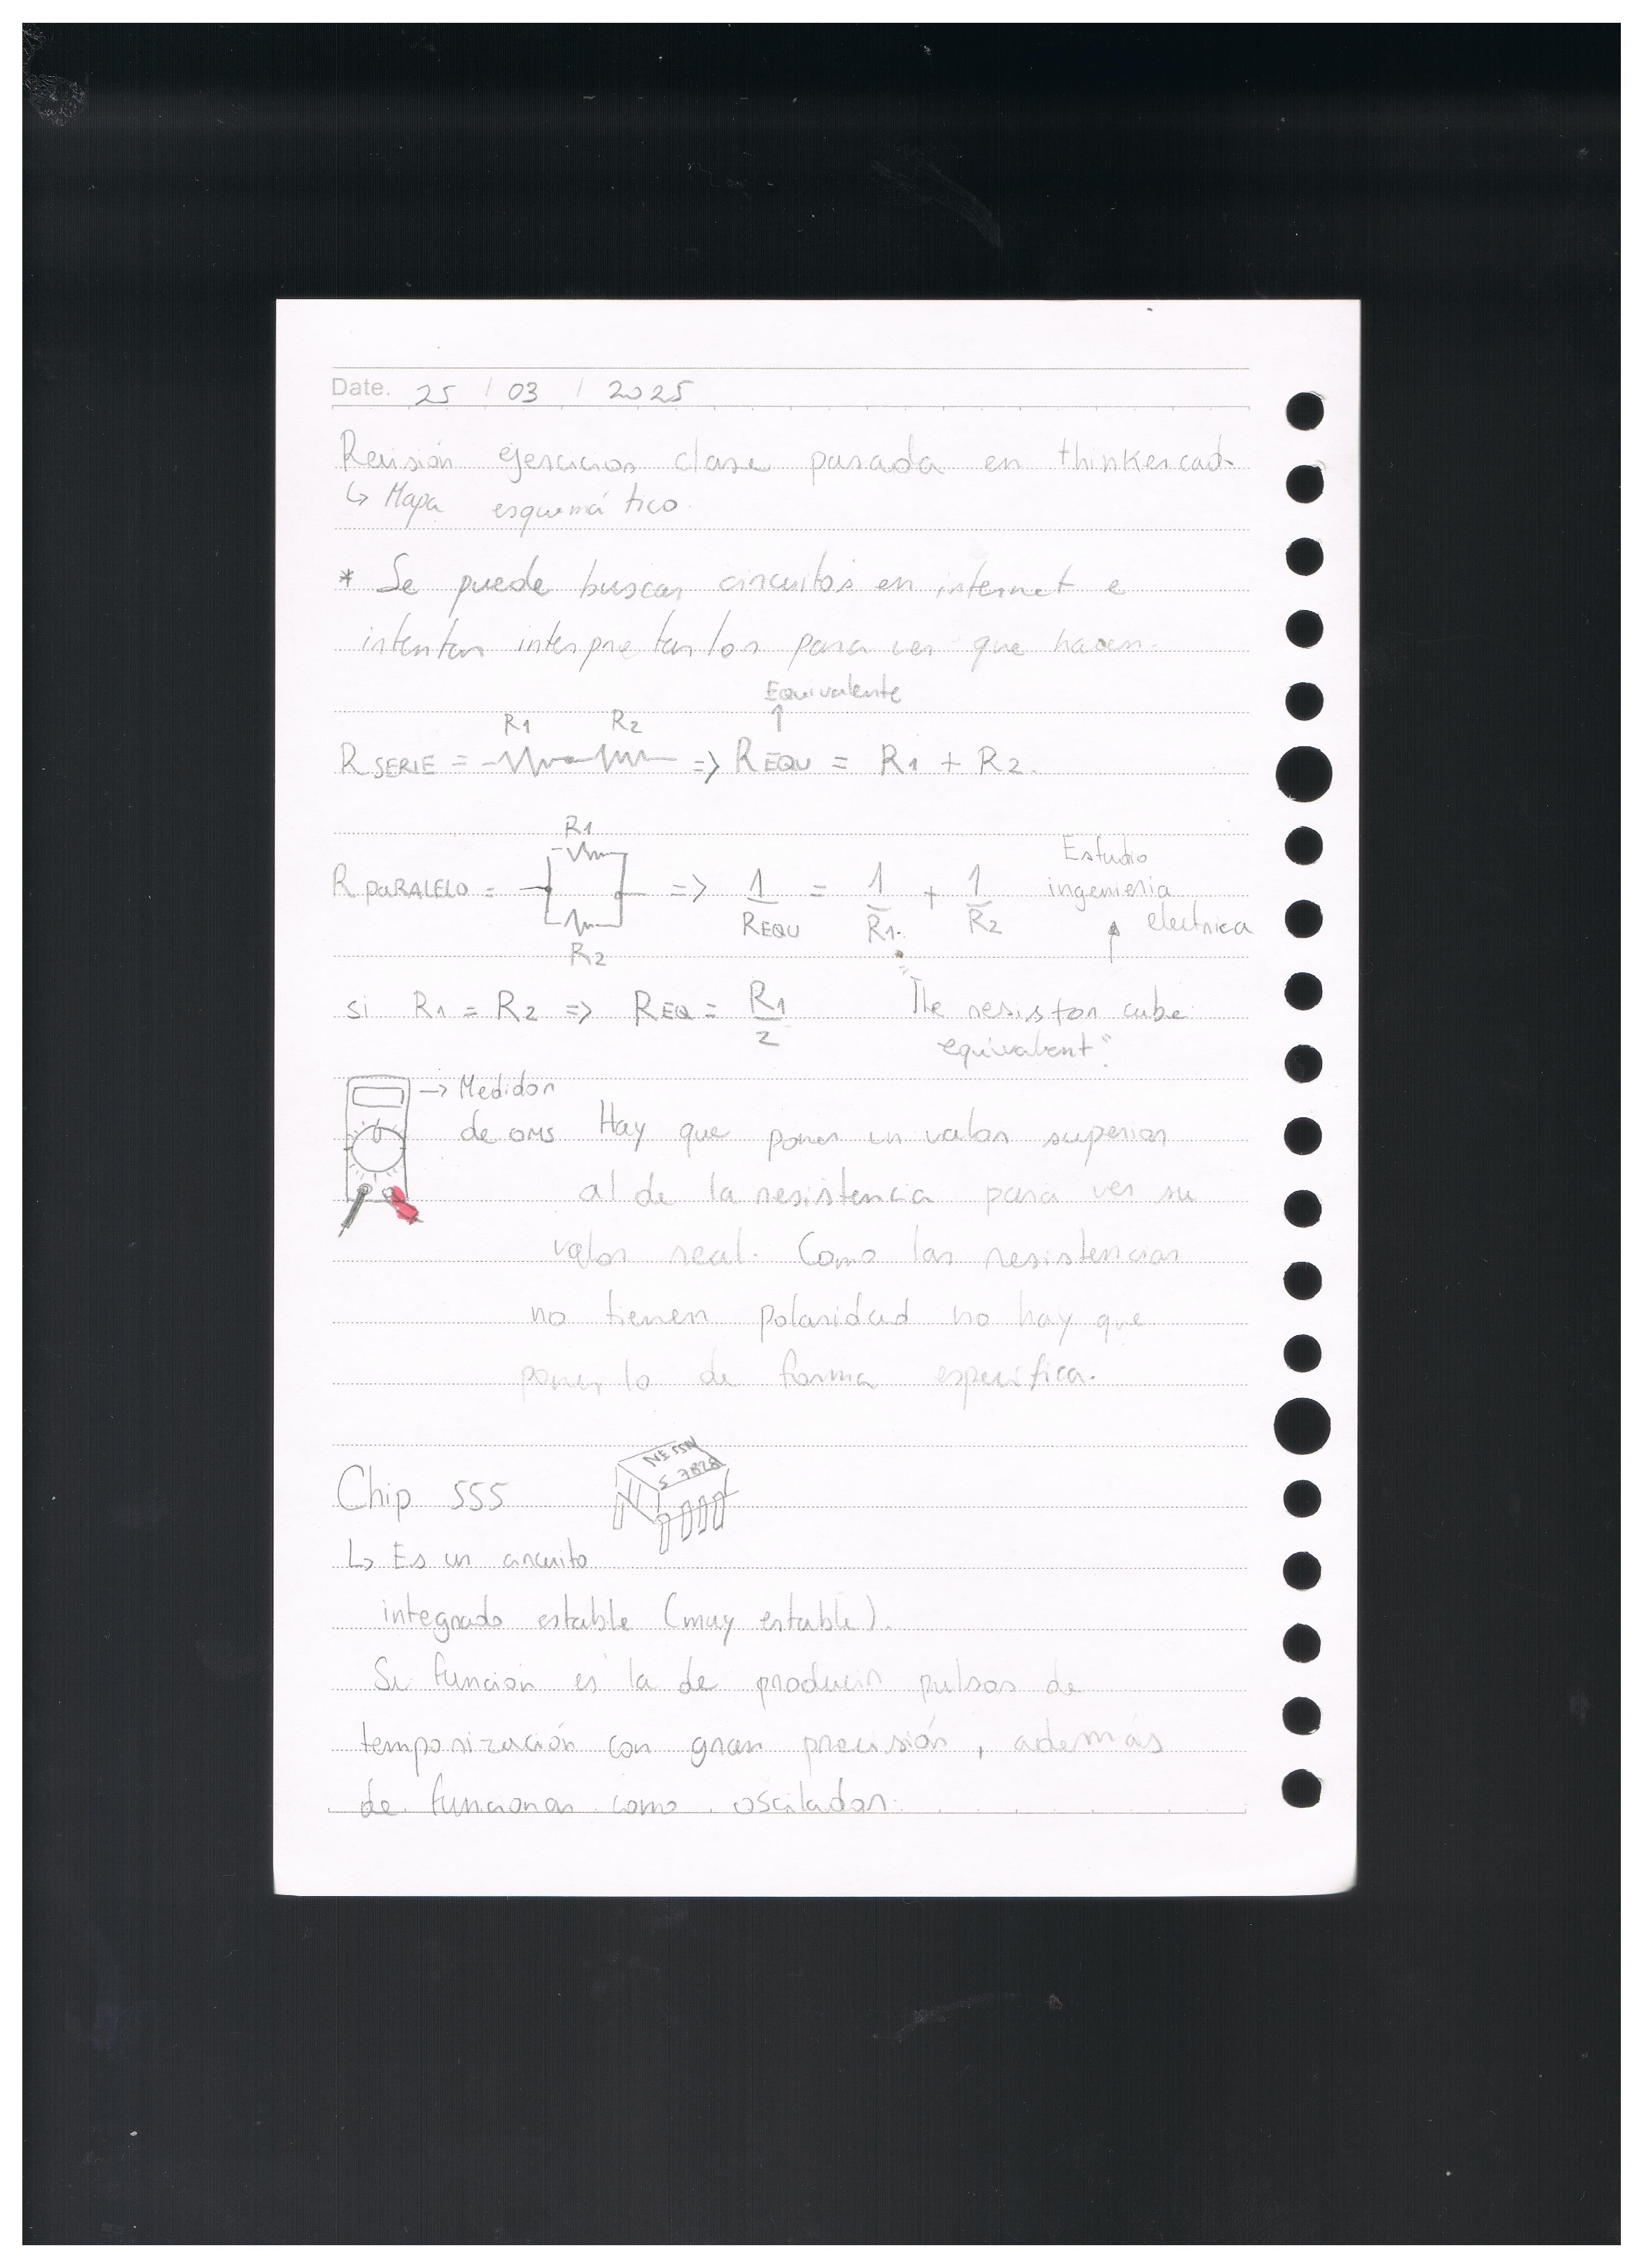 Date. 25 / 03 / 2025
Revisión ejercicios clase pasada en thinkercad.
↳ Mapa esquemático.
* Se puede buscar circuitos en internet e
intentar interpretarlos para ver que hacen.
Equivalente
↑
R1 R2
R SERIE = => R EQU = R1 + R2.
R1
R PARALELO = => 1/REQU = 1/R1 + 1/R2
R2
Estudio
ingenieria
electrica
↑
si R1 = R2 => REQ = R1/2
"The resistor cube
equivalent".
→ Medidor
de OMS Hay que poner un valor superior
al de la resistencia para ver su
valor real. Como las resistencias
no tienen polaridad no hay que
ponerlo de forma específica.
Chip 555
↳ Es un circuito
integrado estable (muy estable).
Su función es la de producir pulsos de
temporización con gran precisión, además
de funcionar como oscilador.